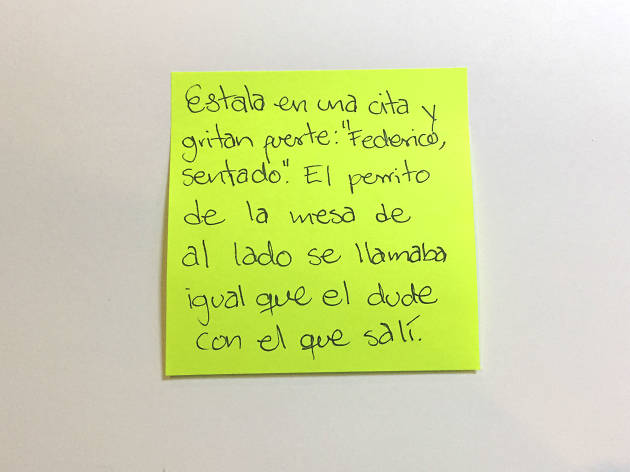 Estala en una cita y
gritan fuerte: "Federico,
sentado". El perrito
de la mesa de
al lado se llamaba
igual que el dude
con el que salí.